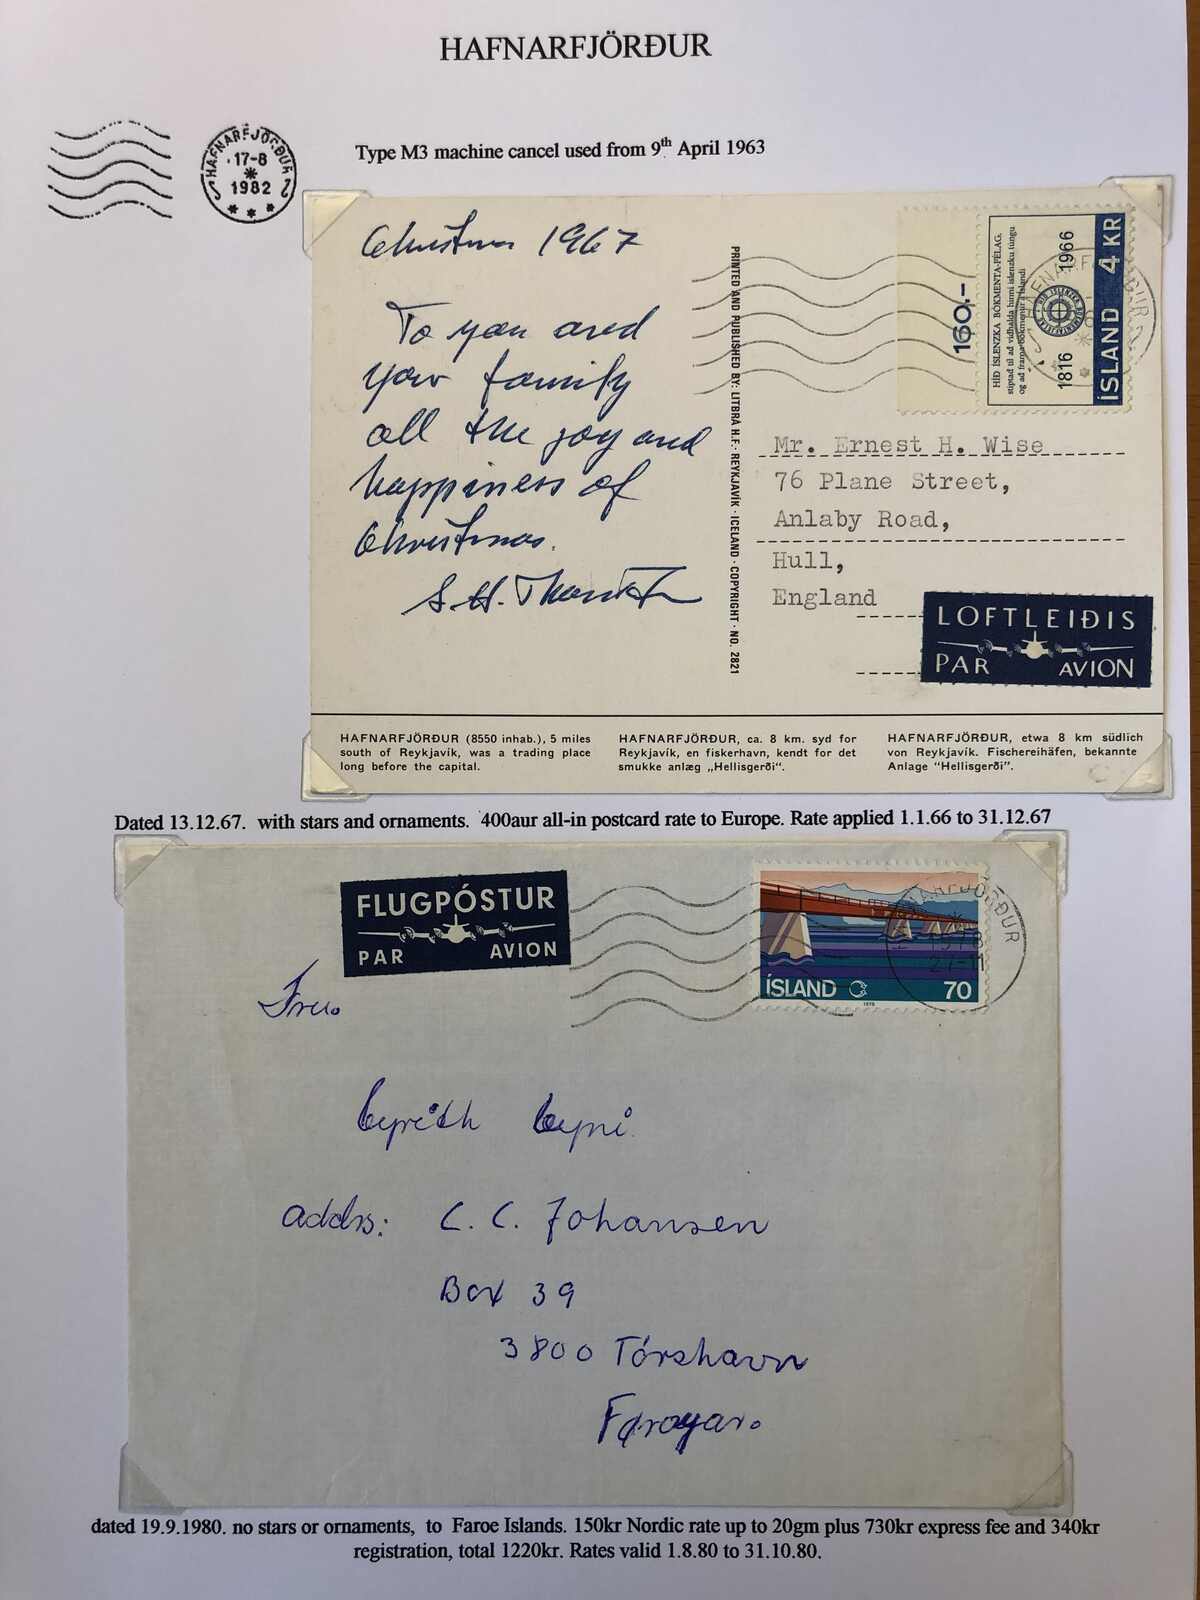 HAFNARFJÖRÐUR
HAFNARFJÖRÐUR
17-8
1982
2
Type M3 machine cancel used from 9th April 1963
Christmas 1967
To you and
your family
all the joy and
happiness of
Christmas.
PRINTED AND PUBLISHED BY: LITBRÁ H.F. · REYKJAVÍK · ICELAND · COPYRIGHT · NO. 2821
160.-
HIÐ ÍSLENZKA BÓKMENTA-FÉLAG.
stiptad til ad vidhalda hinni islenzku túngu
og ad frama bókmentir á Islandi
1816 1966
ÍSLAND 4 KR
Mr. Ernest H. Wise
76 Plane Street,
Anlaby Road,
Hull,
England
LOFTLEIÐIS
PAR AVION
HAFNARFJÖRÐUR (8550 inhab.), 5 miles
south of Reykjavík, was a trading place
long before the capital.
HAFNARFJÖRÐUR, ca. 8 km. syd for
Reykjavík, en fiskerhavn, kendt for det
smukke anlæg „Hellisgerði“.
HAFNARFJÖRÐUR, etwa 8 km südlich
von Reykjavík. Fischereihäfen, bekannte
Anlage “Hellisgerði”.
Dated 13.12.67. with stars and ornaments. 400aur all-in postcard rate to Europe. Rate applied 1.1.66 to 31.12.67
FLUGPÓSTUR
PAR AVION
HAFNARFJÖRÐUR
1978
27-11
ÍSLAND 70
1978
Fru.
addrs: C. C. Johansen
Box 39
3800 Tórshavn
Føroyar.
dated 19.9.1980. no stars or ornaments, to Faroe Islands. 150kr Nordic rate up to 20gm plus 730kr express fee and 340kr
registration, total 1220kr. Rates valid 1.8.80 to 31.10.80.